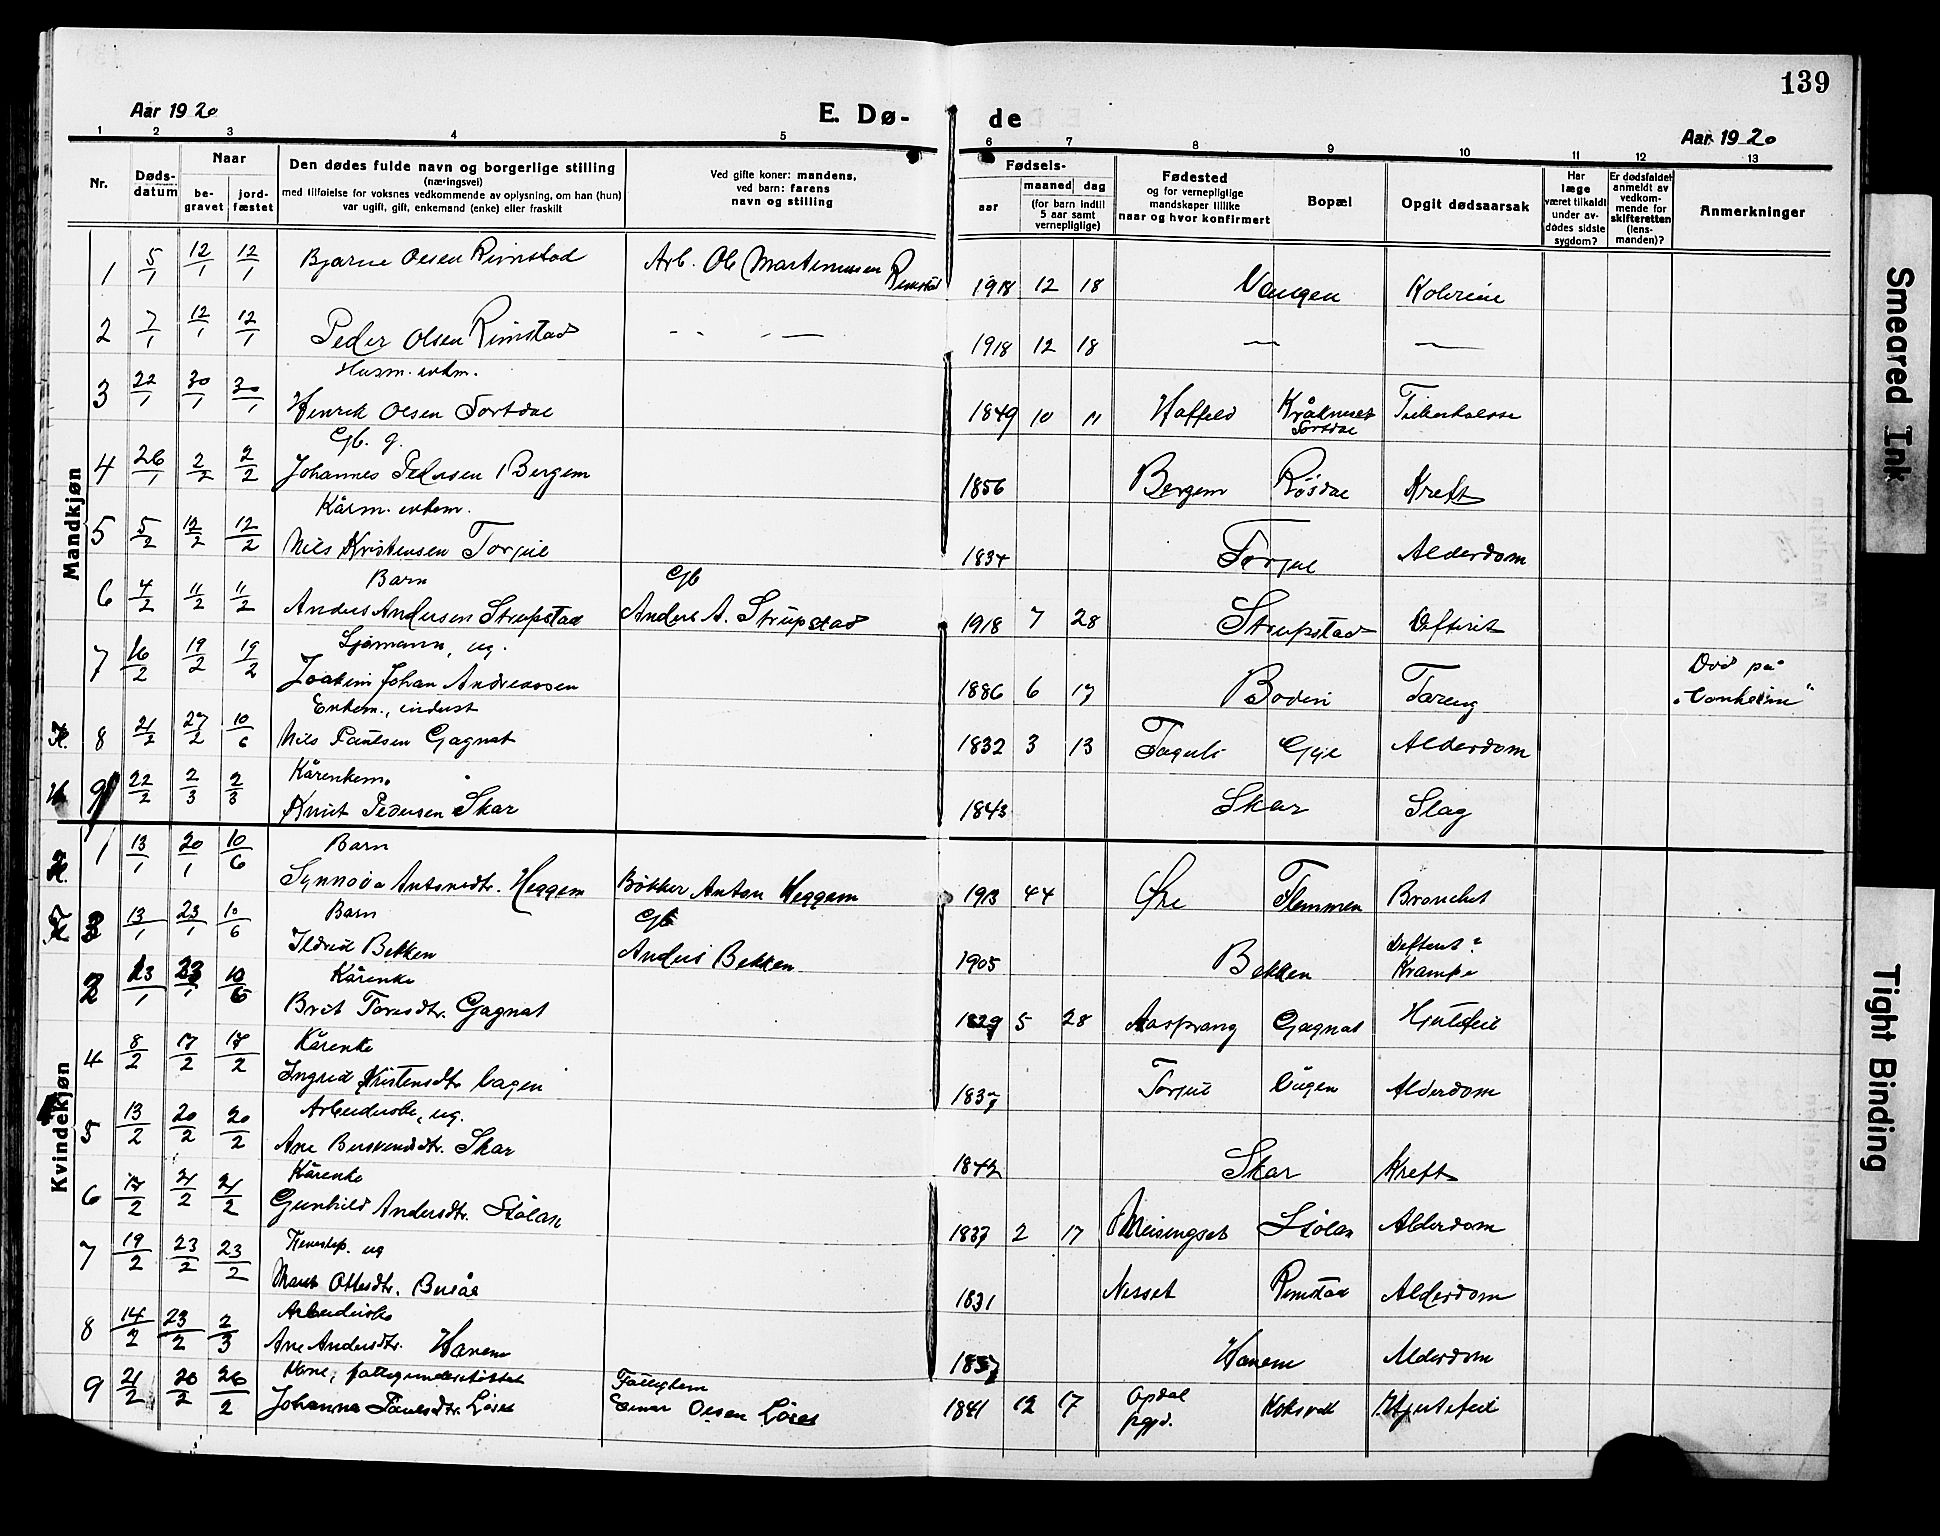 139
Aar 1920
E. Dø-
de
Aar 1920
1 2 3 4 5 6 7 8 9 10 11 12 13
Nr.
Døds-
datum
Naar
be-
gravet
jord-
fæstet
Den dødes fulde navn og borgerlige stilling
(næringsvei)
med tilføielse for voksnes vedkommende av oplysning, om han (hun)
var ugift, gift, enkemand (enke) eller fraskilt
Ved gifte koner: mandens,
ved barn: farens
navn og stilling
Fødsels-
aar
maaned
dag
(for barn indtil
5 aar samt
vernepligtige)
Fødested
og for vernepligtige
mandskaper tillike
naar og hvor konfirmert
Bopæl
Opgit dødsaarsak
Har
læge
været tilkaldt
under av-
dødes sidste
sygdom?
Er dødsfaldet
anmeldt av
vedkom-
mende for
skifteretten
(lens-
manden)?
Anmerkninger
Mandkjøn
1 5/1 12/1 12/1 Bjarne Olsen Rimstad Arb. Ole Martinussen Rimstad 1918 12 18 Vangen
2 7/1 12/1 12/1 Peder Olsen Rimstad - - - — 1918 12 18 — —
Husm. enkm.
3 22/1 30/1 30/1 Henrik Olsen Tortdal 1849 10 11 Haffeld Kråknuset Tortdal Tuberkulose
Gb. g.
4 26/1 2/2 2/2 Johannes Pedersen Bergem 1856 Bergem Røsdal Kreft
Kårm. enkem.
5 5/2 12/2 12/2 Nils Kristensen Torjul 1834 Torjul Alderdom
Barn Gb
6 4/2 11/2 11/2 Anders Andersen Strupstad Anders A. Strupstad 1918 7 28 Strupstad Difterit
Sjømann, ug.
7 16/2 19/2 19/2 Joakim Johan Andreassen 1886 6 17 Bodin Tæring Død på "Vonheim"
Enkem., inderst
8 21/2 27/2 10/6 Nils Paulsen Gagnat 1832 3 13 Fagerli Gyl Alderdom
Kårenkem.
9 22/2 2/3 2/3 Knut Pedersen Skar 1843 Skar Slag
Kvindekjøn
Barn
1 13/1 20/1 10/6 Synnøva Antonsdtr. Heggem Bøkker Anton Heggem 1913 4 4 Øre Flemmen Bronchit
Barn Gb
3 13/1 23/1 10/6 Ildrid Bekken Anders Bekken 1905 Bekken Difterit? Krampe
Kårenke
2 13/1 23/1 10/6 Brit Toresdtr. Gagnat 1829 5 28 Aasprang Gagnat Hjertefeil
Kårenke
4 8/2 17/2 17/2 Ingrid Kristensdtr. 1837 Torjul Alderdom
Arbeiderske, ug.
5 13/2 20/2 20/2 Ane Skar 1842 Skar Kreft
Kårenke
6 17/2 21/2 21/2 Gunhild Andersdtr. Stølan 1837 2 17 Meisingset Stølan Alderdom
ug
7 19/2 23/2 23/2 Marit Ottesdtr. Buråe 1831 Nesset Rimstad Alderdom
Arbeiderske
8 14/2 23/2 2/3 Ane Andersdtr. Hanem 1837 Hanem Alderdom
Kone, fattigunderstøttet Fattiglem
9 21/2 26/2 26/2 Johanna Paulsdtr. Løset Einar Olsen Løset 1841 12 17 Opdal pgjd. Koksvik Hjertefeil
Smeared Ink
Tight Binding